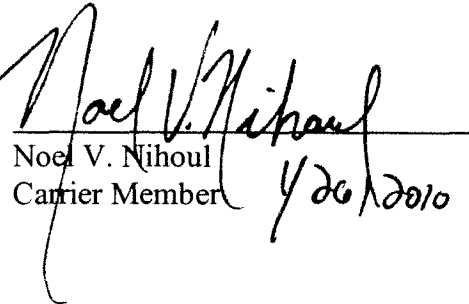 Noel V. Nihoul
Noel V. Nihoul
Carrier Member 4/26/2010